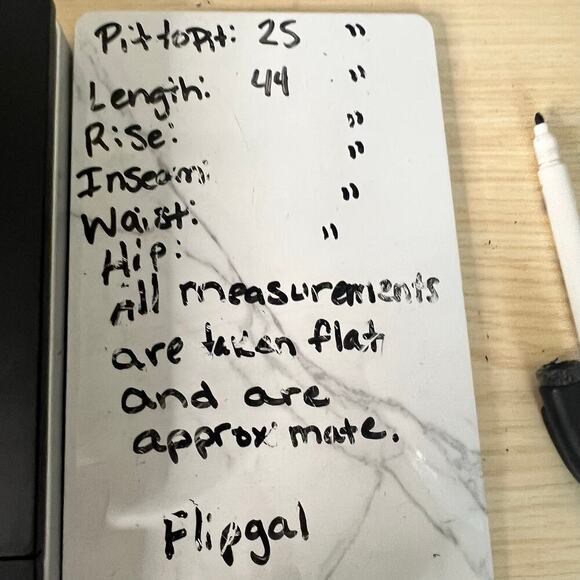 Pit to pit: 25 "
Length: 44 "
Rise: "
Inseam: "
Waist: "
Hip: "
All measurements
are taken flat
and are
approximate.
Flipgal